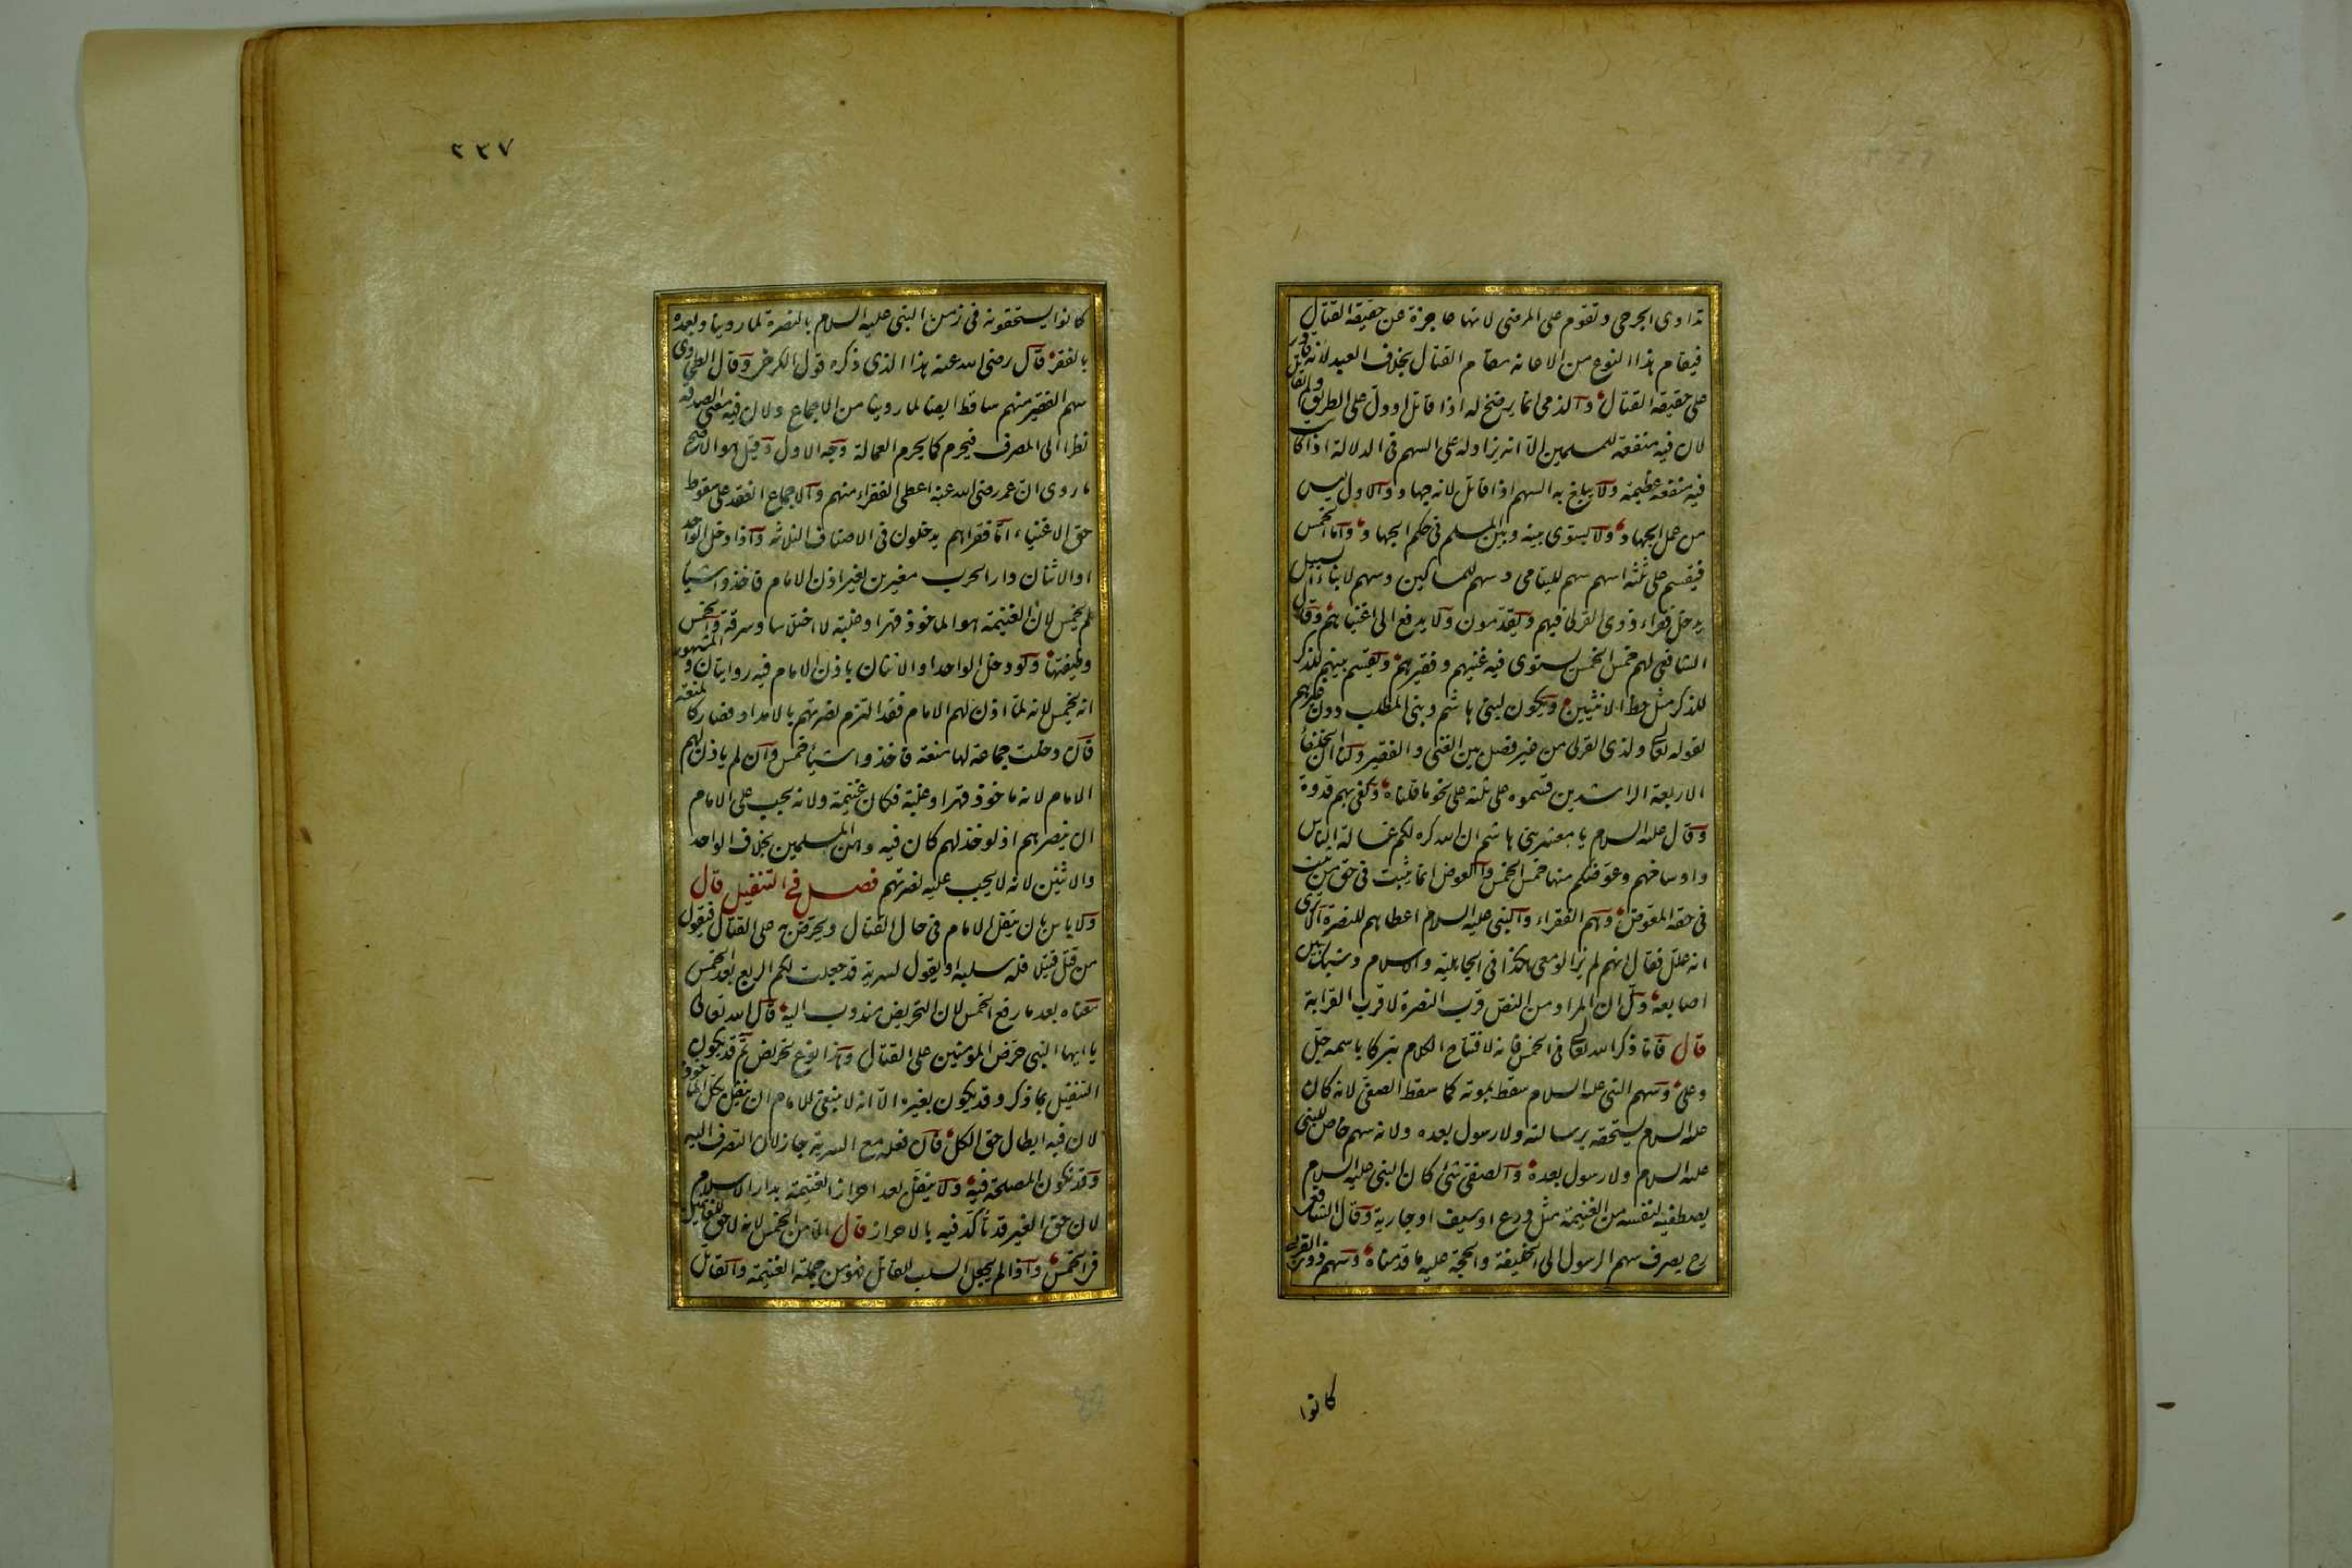 تداوى الجرحى وتقوم على المرضى لانها عاجزة عن حقيقة القتال
فيقام هذا النوع من الاعانة مقام القتال بخلاف العبد لانه قادر
على حقيقة القتال والذمى انما يرضخ له اذا قاتل او دل على الطريق ولم يقاتل
لان فيه منفعة للمسلمين الا انه يزاد له على السهم فى الدلالة اذا كانت
فيه منفعة عظيمة ولا يبلغ به السهم اذا قاتل لانه جهاد والاول ليس
من عمل الجهاد ولا يستوى بينه وبين المسلم فى حكم الجهاد واما الخمس
فيقسم على ثلثة اسهم سهم لليتامى وسهم للمساكين وسهم لابناء السبيل
يدخل فقراء ذوى القربى فيهم ويقدمون ولا يدفع الى اغنيائهم وقال
الشافعى لهم خمس الخمس يستوى فيه غنيهم وفقيرهم ويقسم بينهم للذكر
للذكر مثل حظ الانثيين ويكون لبنى هاشم وبنى المطلب دون غيرهم
لقوله تعالى ولذى القربى من غير فصل بين الغنى والفقير ولنا ان الخلفاء
الاربعة الراشدين قسموه على ثلثة على نحو ما قلناه وكفى بهم قدوة
وقال عليه السلام يا معشر بنى هاشم ان الله كره لكم غسالة الناس
واوساخهم وعوضكم منها خمس الخمس والعوض انما يثبت فى حق من يثبت
فى حقه المعوض وهم الفقراء والنبى عليه السلام اعطاهم للنصرة الا يرى
انه علل فقال انهم لم يزالو معى هكذا فى الجاهلية والاسلام وشبك بين
اصابعه دل ان المراد من النص قرب النصرة لا قرب القرابة
قال فاما ذكر الله تعالى فى الخمس فانه لافتتاح الكلام تبركا باسمه جل
وعلى وسهم النبى عليه السلام سقط بموته كما سقط الصفى لانه كان
عليه السلام يستحقه برسالته ولا رسول بعده ولانه سهم خاص للنبى
عليه السلام ولا رسول بعده والصفى شئ كان النبى عليه السلام
يصطفيه لنفسه من الغنيمة مثل درع او سيف او جارية وقال الشافعى
رح يصرف سهم الرسول الى الخليفة والحجة عليه ما قدمناه وسهم ذوى القربى
كانوا
٢٣٧
كانوا يستحقونه فى زمن النبى عليه السلام بالنصرة لما روينا وبعده
بالفقر قال رضى الله عنه هذا الذى ذكره قول الكرخى وقال الطحاوى
سهم الفقير منهم ساقط ايضا لما روينا من الاجماع ولان فيه معنى الصدقة
نظرا الى المصرف فيحرم كما يحرم العمالة وجه الاول وقيل هو الاصح
ما روى ان عمر رضى الله عنه اعطى الفقراء منهم والاجماع انعقد على سقوط
حق الاغنياء اما فقراهم يدخلون فى الاصناف الثلاثه واذا دخل الواحد
او الاثنان دار الحرب مغيرين بغير اذن الامام فاخذوا شيأ
لم يخمس لان الغنيمة هو الماخوذ قهرا وغلبة لا اختلاسا وسرقة والخمس
وظيفتها ولو دخل الواحد او الاثنان باذن الامام فيه روايتان والمشهور
انه يخمس لانه لما اذن لهم الامام فقد التزم نصرتهم بالامداد فصار كالمنعة
فان دخلت جماعة لها منعة فاخذوا شيأ خمس وان لم ياذن لهم
الامام لانه ماخوذ قهرا وغلبة فكان غنيمة ولانه يجب على الامام
ان ينصرهم اذ لو خذلهم كان فيه وهن المسلمين بخلاف الواحد
والاثنين لانه لا يجب عليه نصرتهم فصل فى التنفيل قال
ولا باس بان ينفل الامام فى حال القتال ويحرض به على القتال فيقول
من قتل قتيلا فله سلبه او يقول لسرية قد جعلت لكم الربع بعد الخمس
معناه بعد ما رفع الخمس لان التحريض مندوب اليه قال الله تعالى
يا ايها النبى حرض المؤمنين على القتال وهذا نوع تحريض ثم قد يكون
التنفيل بما ذكر وقد يكون بغيره الا انه لا ينبغى للامام ان ينفل بكل الماخوذ
لان فيه ابطال حق الكل فان فعله مع السرية جاز لان التصرف اليه
وقد تكون المصلحة فيه ولا ينفل بعد احراز الغنيمة بدار الاسلام
لان حق الغير قد تاكد فيه بالاحراز قال الا من الخمس لانه لا حق للغانمين
فى الخمس واذا لم يجعل السلب للقاتل فهو من جملة الغنيمة والقاتل